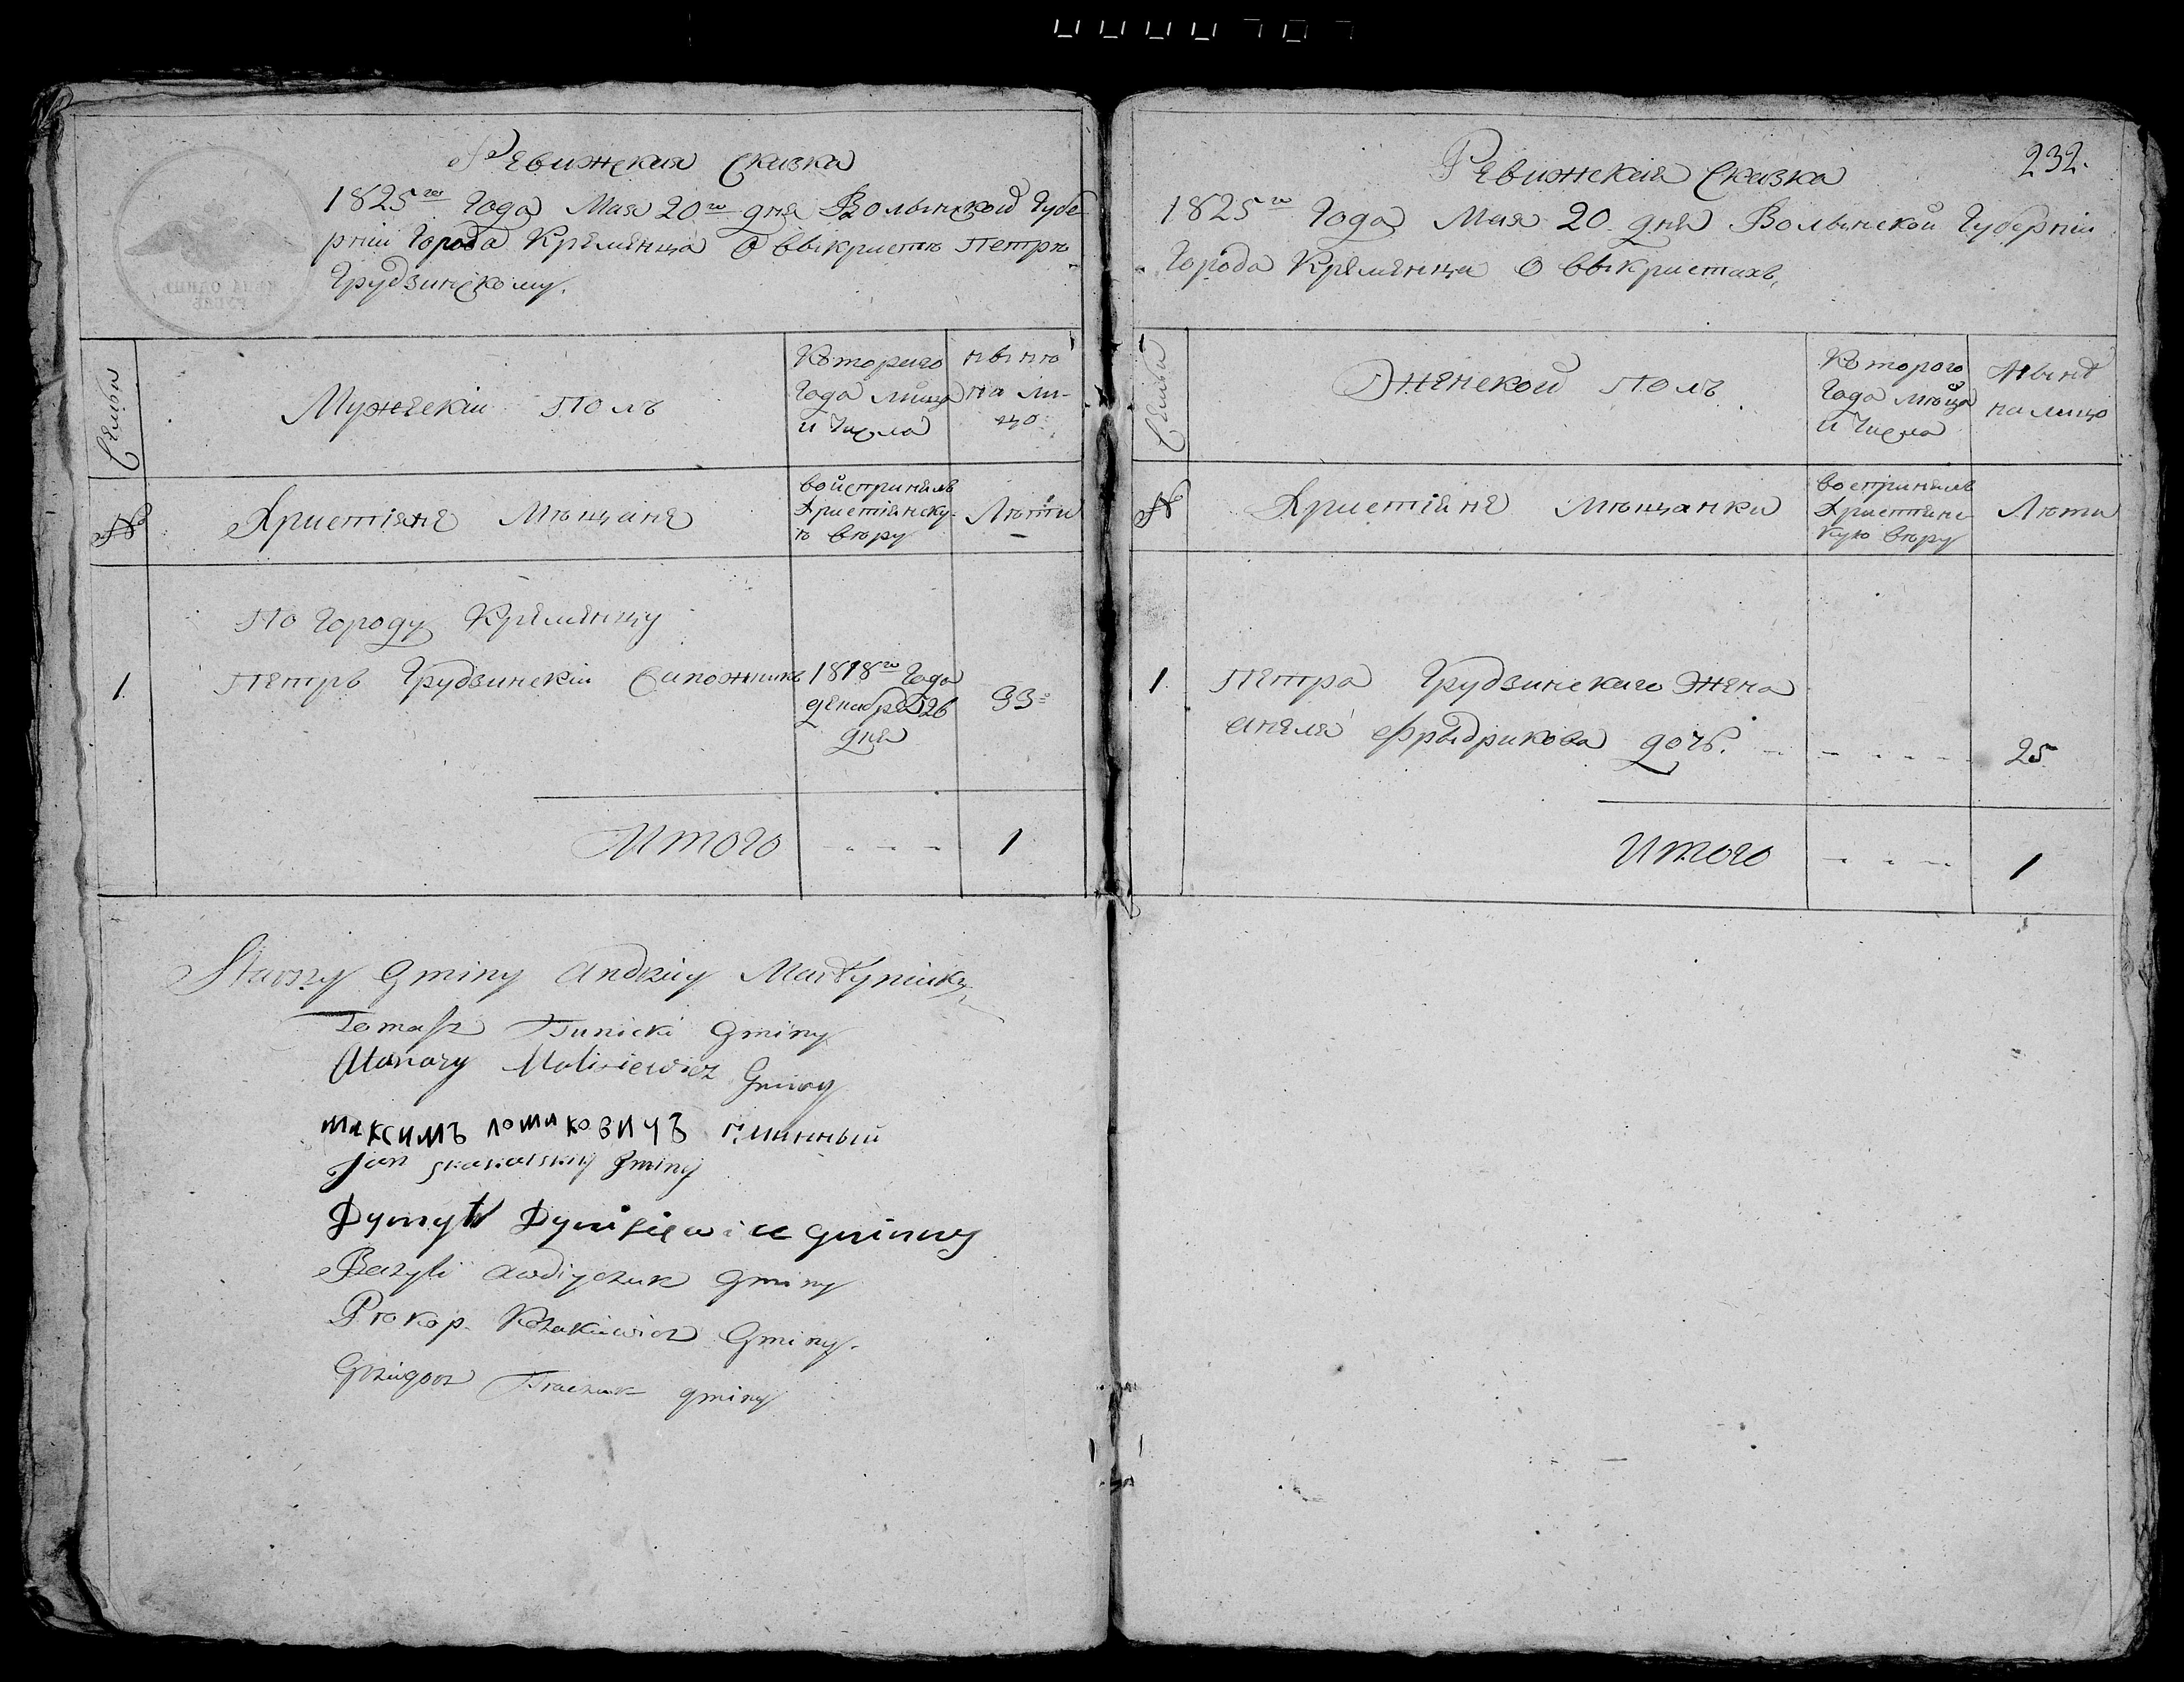 Ревижская Сказка
1825го Года Мая 20го дня Волынской Губе
рніи Города Кремянца О выкристѣ Петрѣ
Грудзинскому.
Семіи
Мужескіи Полъ
Которого
Года мѣсца
и Числа
нынѣ
на ли-
цо
№
Христіяне Мѣщане
воиспринялъ
Христіянску-
ю вѣру
Лѣти
По Городу Кремянцу
1.
Петръ Грудзинскіи Сапожникъ
1818го Года
декабря 26
дня
33
Итого
1
Starszy Gminy Andrzüy Martyniuk
Tomasz Gminy
Atanazy Gminy
максимъ ломаковичъ гминный
Jan Gminy
Dymytr gminny
Bazyli Awdiyczuk Gminy
Prokop Kozakiewicz Gminy.
Grzügorz Tkaczuk gminy
232.
Ревижская Сказка
1825го Года Мая 20 дня Волынской Губерніи
Города Кремянца О выкристахъ,
Семіи
Женской Полъ
Которого
Года мѣсца
и Числа
Нынѣ
на лицо
№
Христіяне Мѣщанки
воспринялъ
Христіянс-
кую вѣру
Лѣти
1.
Петра Грудзинскаго Жена
анеля Фрыдрикова дочь.
25
Итого
1